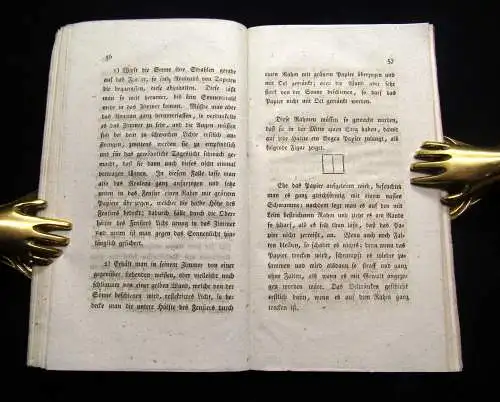 56
1) Wirft die Sonne ihre Strahlen gerade
auf das Fenster, so sind Rouleaus von Tapeten
die bequemsten, diese abzuhalten. Diese läßt
man so weit herunter, bis kein Sonnenstrahl
mehr in das Zimmer kommt. Müßte man aber
das Rouleau ganz herunterlassen, so verdunkelte
es das Zimmer zu sehr, und die Augen müßten
sich bei dem zu schwachen Lichte
zweitens werden sie
für das gewöhnliche Tageslicht
macht, daß sie dann auch dieses nicht einmal
vertragen können. In diesem Falle lasse man
also das Rouleau ganz aufgezogen und setze
unten in das Fenster einen Rahm mit grünem
Papier überzogen, welcher die halbe Höhe des
Fensters bedeckt; dadurch fällt durch die Ober
hälfte des Fensters Licht genug in das Zimmer
und unten ist man gegen das Sonnenlicht hin-
länglich gesichert.
2) Erhält man in seinem Zimmer von einer
gegenüber stehenden weißen, oder vielleicht noch
schlimmer von einer gelben Wand, welche von
der Sonne beschienen wird, reflektirtes Licht, so be-
decke man die untere Hälfte des Fensters durch
57
einen Rahm mit grünem Papier überzogen und
mit Oel getränkt; wird die Wand aber sehr
stark von der Sonne beschienen, so darf das
Papier nicht mit Oel getränkt werden.
Diese Rahmen müssen so gemacht werden,
daß sie in der Mitte einen Steg haben, damit
auf jede Hälfte ein Bogen Papier zulangt, als
folgende Figur zeiget.
Ehe das Papier aufgeleimt wird, befeuchtet
man es ganz gleichförmig mit einem nassen
Schwamme; nachdem legt man es auf den mit
Leim bestrichenen Rahm und ziehe es am Rande
so scharf an, als es nur immer ausgehalten
werden kann, ohne zu zerreißen. Wenn auch noch Falten
bleiben, so schadet es nichts; denn wenn das
Papier trocken wird, schrumpft es wieder zu-
sammen und wird alsdann so straff und ganz
ohne Falten, als wenn es mit Gewalt angezo-
gen worden wäre. Das Oeltränken geschieht
erstlich dann, wenn es auf dem Rahm ganz
trocken ist.